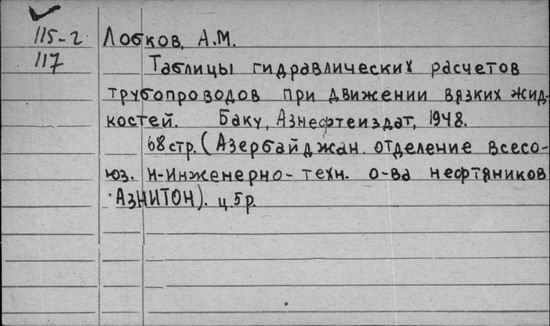 115-2 Лобков, А.М.
117 Таблицы гидравлических расчетов
трубопроводов при движении вязких жид-
костей. Баку, Азнефтеиздат, 1948.
68 стр. (Азербайджан. отделение всесо-
юз. н-инженерно-техн. о-ва нефтяников
АЗНИТОН). ц. 5 р.